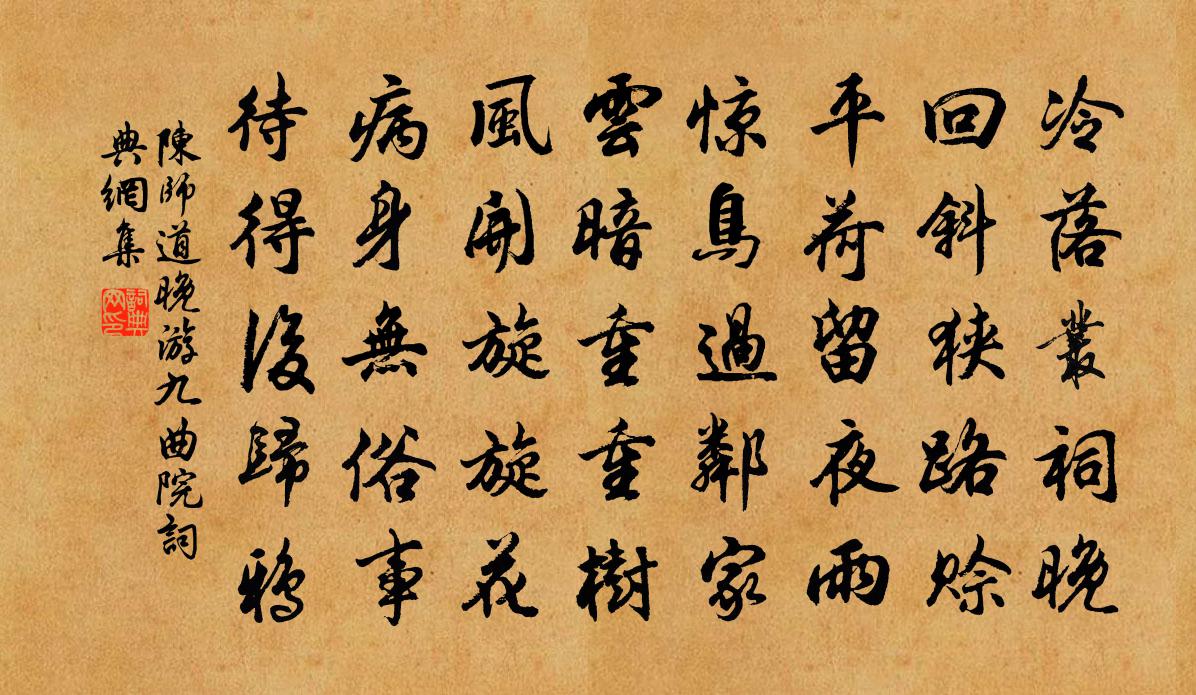 冷落叢祠晚
回斜狹路賒
平荷留夜雨
惊鳥過鄰家
雲暗重重樹
風開旋旋花
病身無俗事
待得後歸鴉
陳師道晚游九曲院詞
典網集
詞典
网印